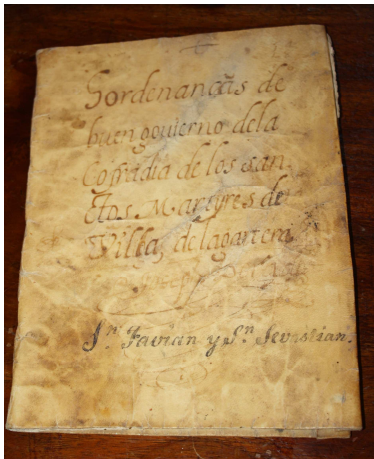 Hordenanças de
buen gouierno dela
Cofradia de los san
ctos Martyres de
Villa, de lagartera
Sn. Favian y Sn. Sevastian.